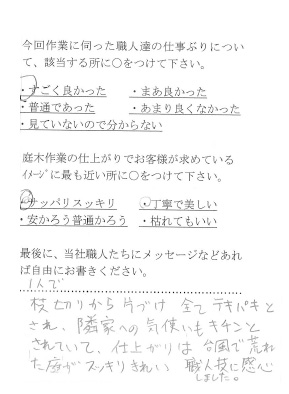 今回作業に伺った職人達の仕事ぶりについ
て、該当する所に○をつけて下さい。
・すごく良かった ・まあ良かった
・普通であった ・あまり良くなかった
・見ていないので分からない
庭木作業の仕上がりでお客様が求めている
ｲﾒｰｼﾞに最も近い所に○をつけて下さい。
・サッパリスッキリ ・丁寧で美しい
・安かろう普通かろう ・枯れてもいい
最後に、当社職人たちにメッセージなどあれ
ば自由にお書きください。
1人で
枝切りから片づけ 全てテキパキと
され、隣家への気使いもキチンと
されていて、仕上がりは台風で荒れ
た庭がスッキリきれい 職人技に感心
しました。